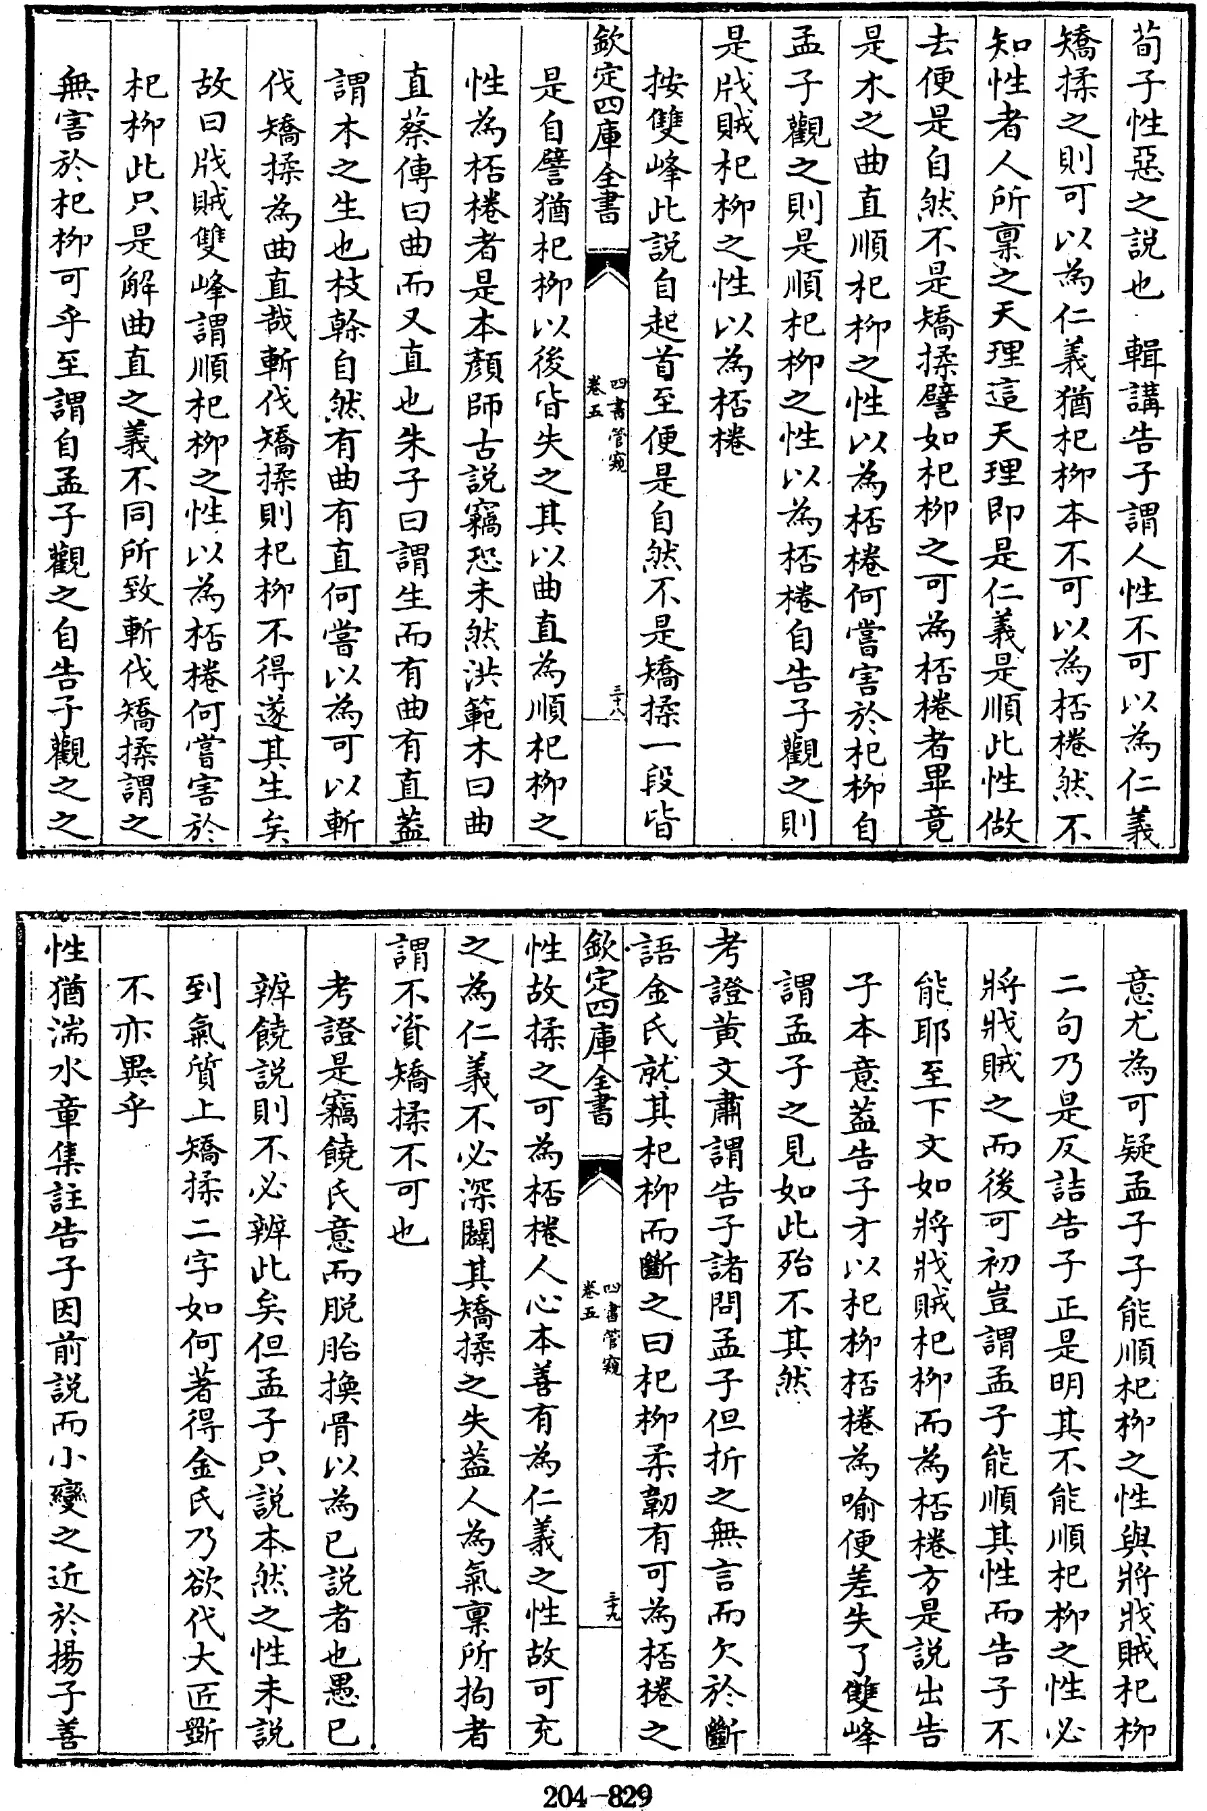 荀子性惡之說也　輯講告子謂人性不可以為仁義
矯揉之則可以為仁義猶杞柳本不可以為桮棬然不
知性者人所禀之天理這天理即是仁義是順此性做
去便是自然不是矯揉譬如杞柳之可為桮棬者畢竟
是木之曲直順杞柳之性以為桮棬何嘗害於杞柳自
孟子觀之則是順杞柳之性以為桮棬自告子觀之則
是戕賊杞柳之性以為桮棬
按雙峰此說自起首至便是自然不是矯揉一段皆
欽定四庫全書
四書管窺
卷五
三十八
是自譬猶杞柳以後皆失之其以曲直為順杞柳之
性為桮棬者是本顏師古說竊恐未然洪範木曰曲
直蔡傳曰曲而又直也朱子曰謂生而有曲有直蓋
謂木之生也枝榦自然有曲有直何嘗以為可以斬
伐矯揉為曲直哉斬伐矯揉則杞柳不得遂其生矣
故曰戕賊雙峰謂順杞柳之性以為桮棬何嘗害於
杞柳此只是解曲直之義不同所致斬伐矯揉謂之
無害於杞柳可乎至謂自孟子觀之自告子觀之之
意尤為可疑孟子子能順杞柳之性與將戕賊杞柳
二句乃是反詰告子正是明其不能順杞柳之性必
將戕賊之而後可初豈謂孟子能順其性而告子不
能耶至下文如將戕賊杞柳而為桮棬方是說出告
子本意蓋告子才以杞柳桮棬為喻便差失了雙峰
謂孟子之見如此殆不其然
考證黃文肅謂告子諸問孟子但折之無言而欠於斷
語金氏就其杞柳而斷之曰杞柳柔韌有可為桮棬之
欽定四庫全書
四書管窺
卷五
三十九
性故揉之可為桮棬人心本善有為仁義之性故可充
之為仁義不必深闢其矯揉之失蓋人為氣禀所拘者
謂不資矯揉不可也
考證是竊饒氏意而脫胎換骨以為已說者也愚已
辨饒說則不必辨此矣但孟子只說本然之性未說
到氣質上矯揉二字如何著得金氏乃欲代大匠斵
不亦異乎
性猶湍水章集註告子因前說而小變之近於揚子善
204-829